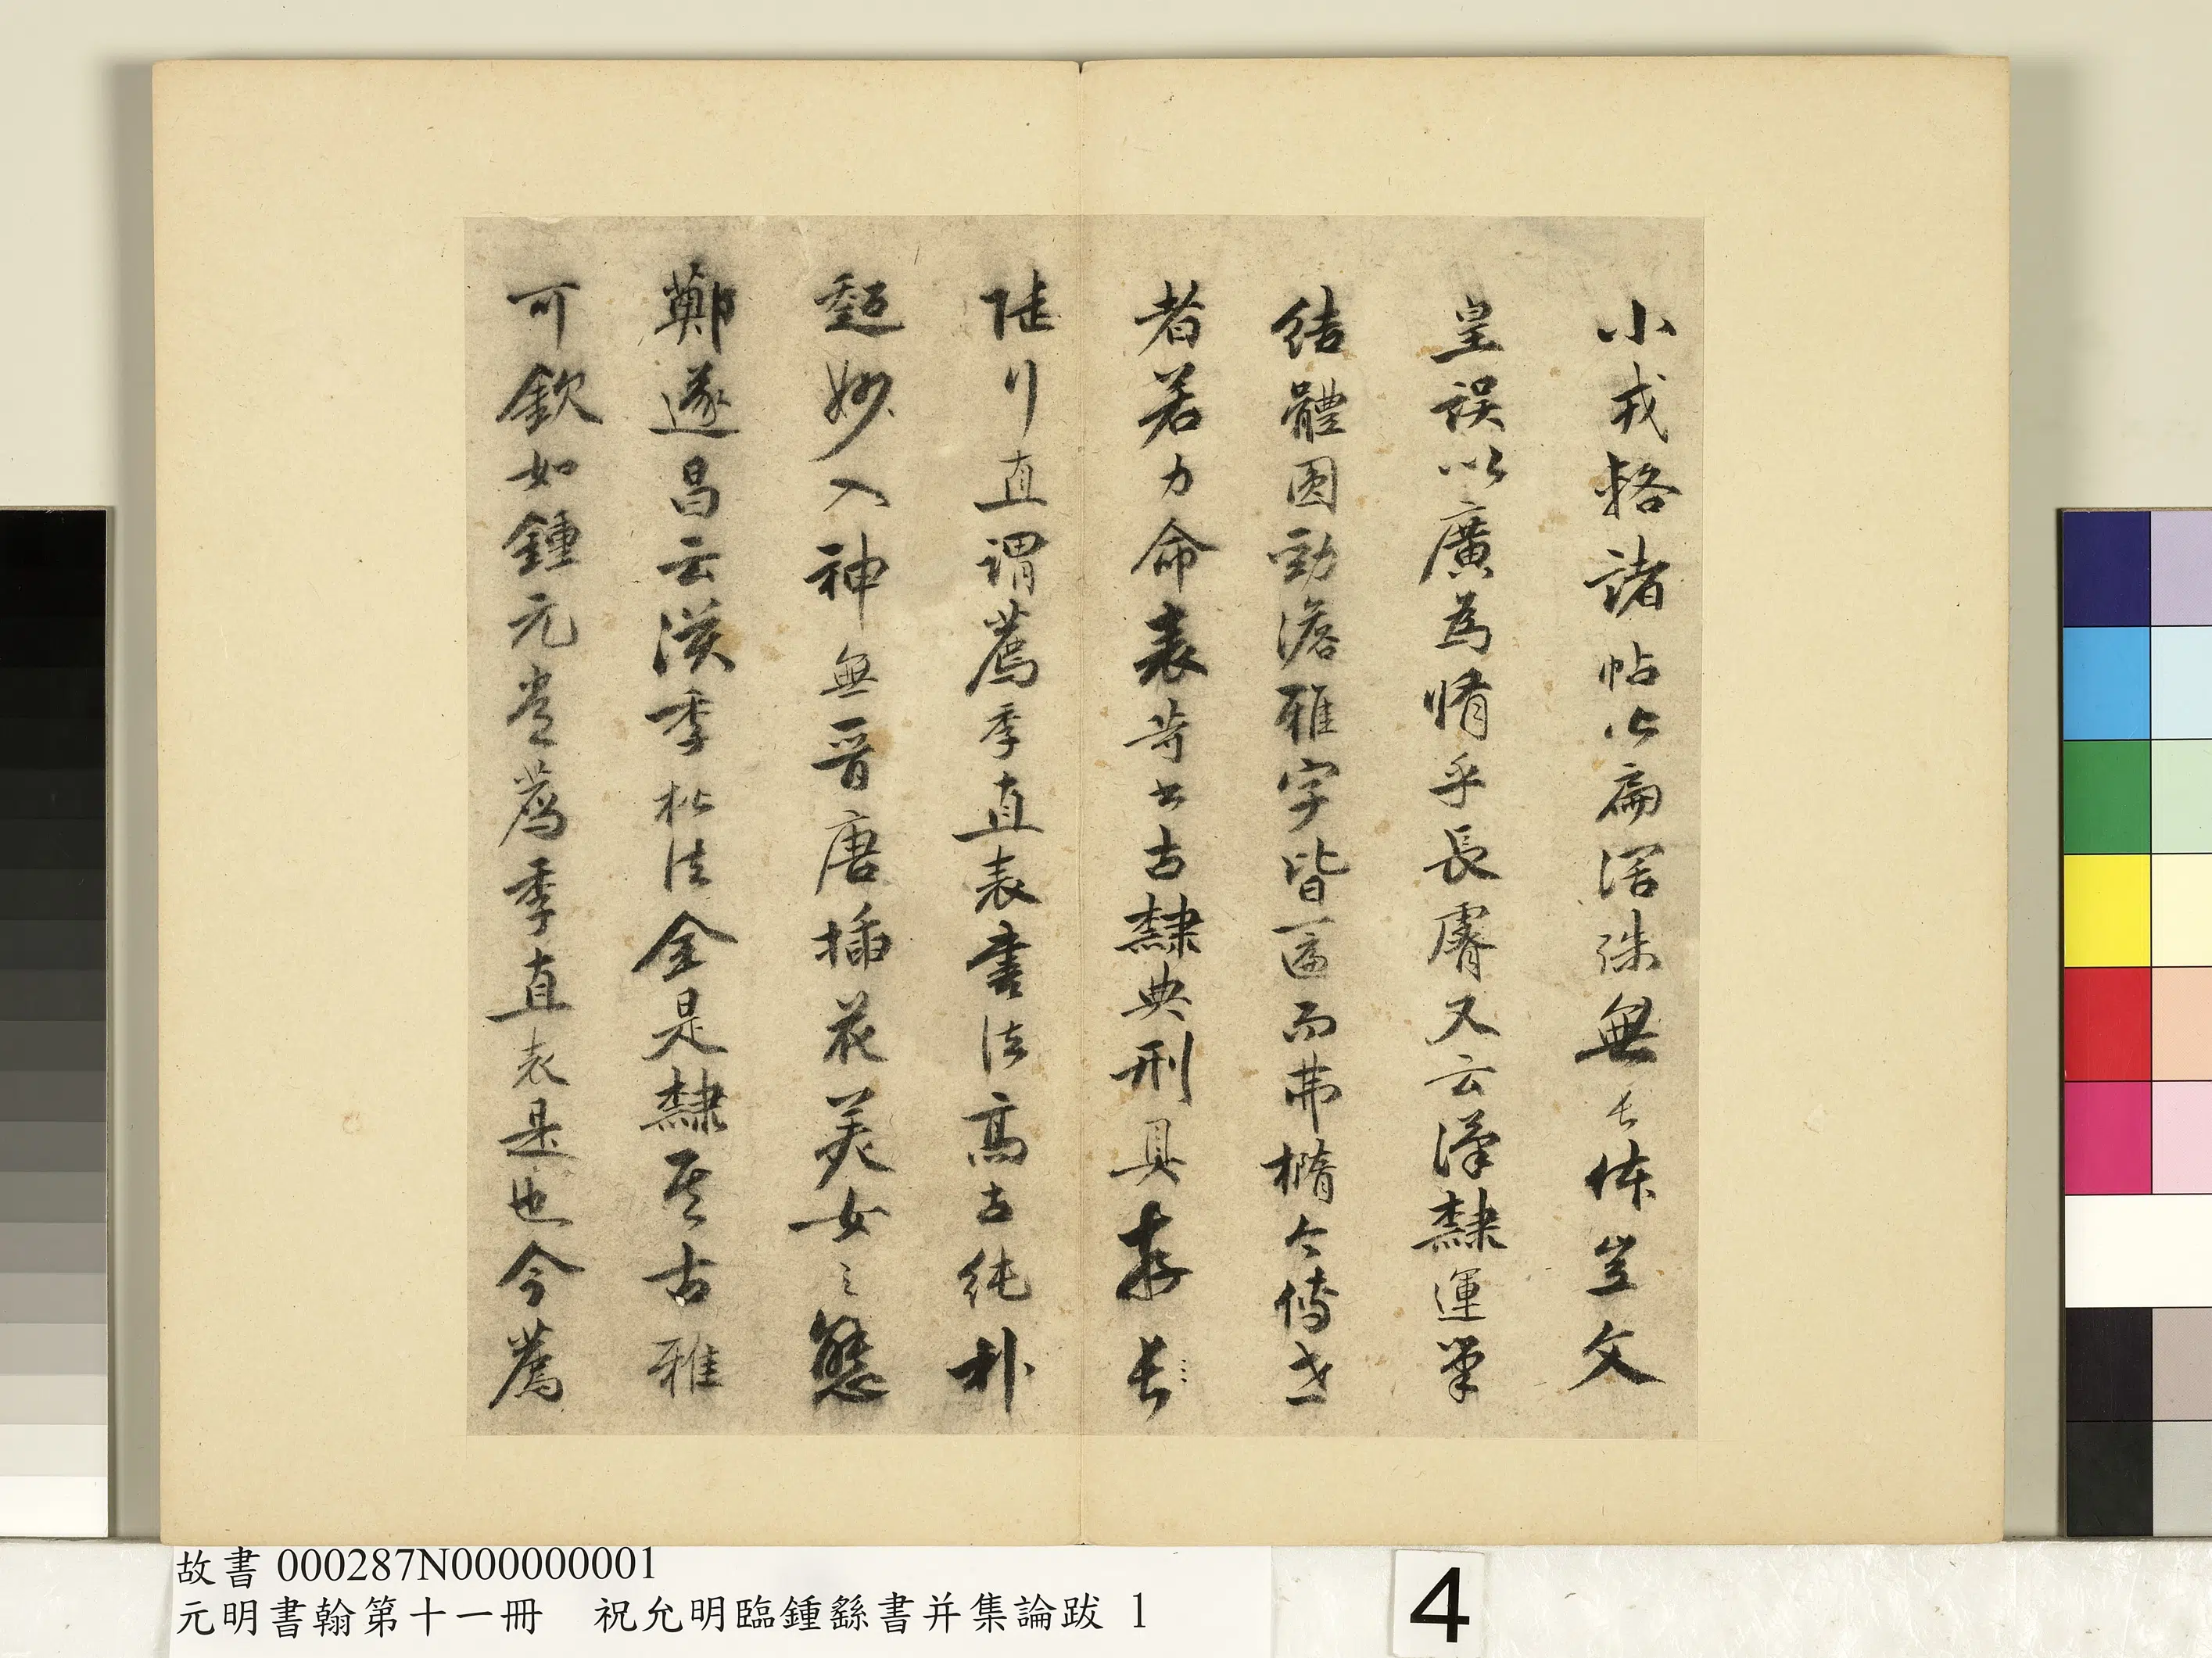 小戎輅諸帖以扁闊殊無長体豈文
皇誤以廣為脩乎長睿又云漢隸運筆
結體圓勁淡雅字皆匾而弗橢今傳世
者若力命表等出古隸典刑具存長
陸行直謂薦季直表書法高古純朴
超妙入神無晉唐插花美女之態
鄭遂昌云漢季松法全是隸其古雅
可欽如鍾元常薦季直表是也今薦
故書 000287N000000001
元明書翰第十一冊 祝允明臨鍾繇書并集論跋 1
4